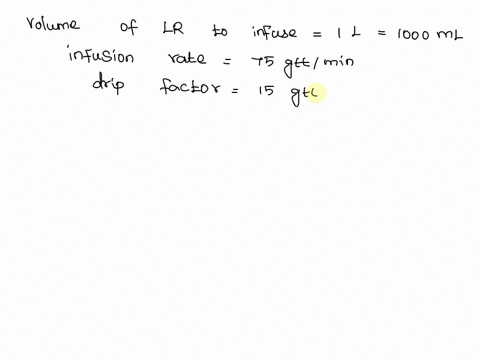 Volume of LR to infuse = 1 L = 1000 mL
infusion rate = 75 gtt/min
drip factor = 15 gtt